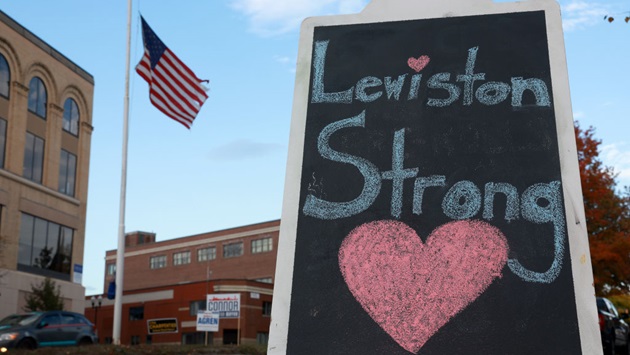 Lewiston
Strong
CONNOR
AGREN